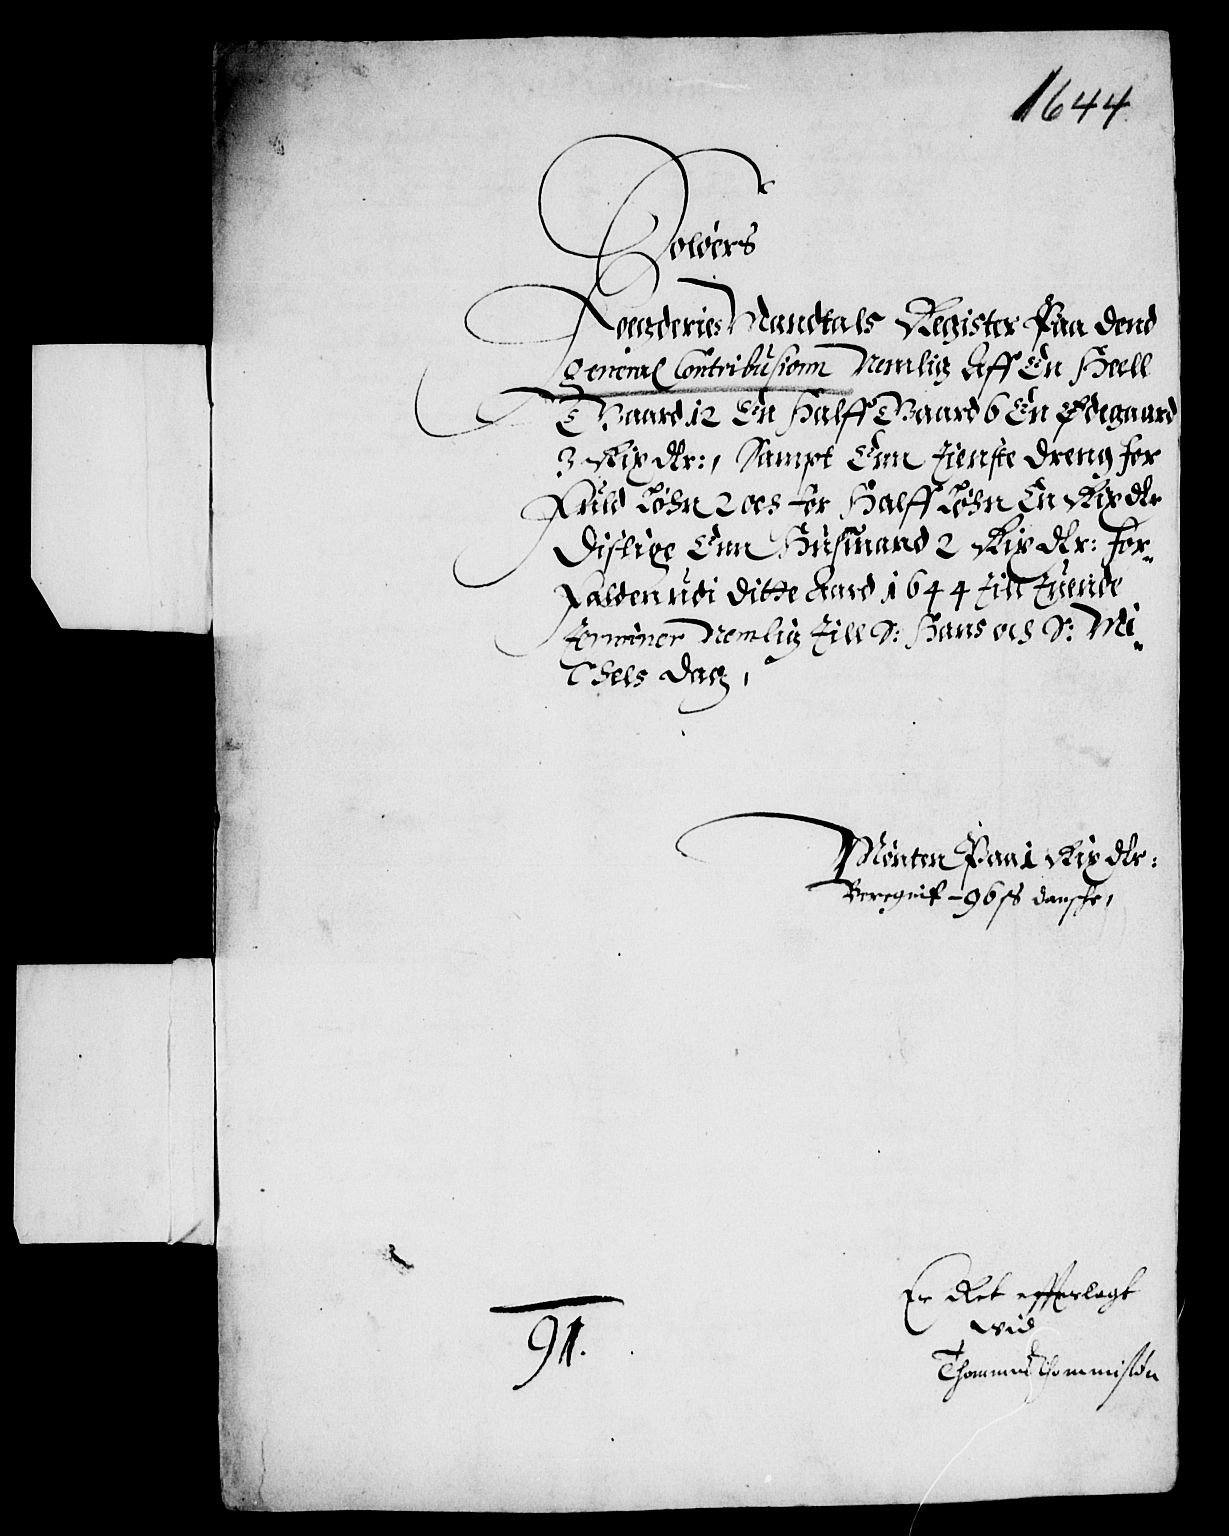 1644
Soløers
Foegderies Mandtals Register Paa dend
general Contribusionn Nemlig Aff En Heell
Gaard 12 En Halff Gaard 6 En Ødegaard
3 Rix dlr:, Sampt Enn tienste dreng for
Fuld Løhn 2 och for Halff Løhn En Rix dlr
Dislige Enn Husmand 2 Rix dlr: for-
falden udi ditte Aard 1644 till tuende
terminer Nemlig till S: Hans och S: Mi-
chels dag,
Mønten Paa 1 Rix dlr:
Beregnit - 96 ß danske,
Er Ret efferlagt
vid
Thommes Thommissøn
91.